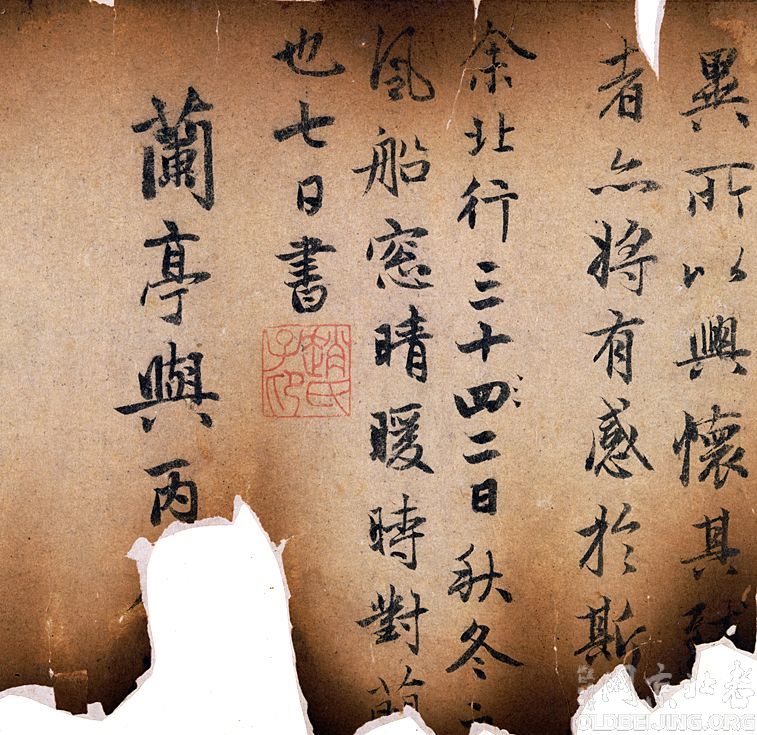 異所以興懷其致
者亦將有感於斯
余北行三十四二日秋冬
風船窓晴暖時對
也七日書
趙氏子昂
蘭亭與丙
老北京网
OLDBEIJING.ORG